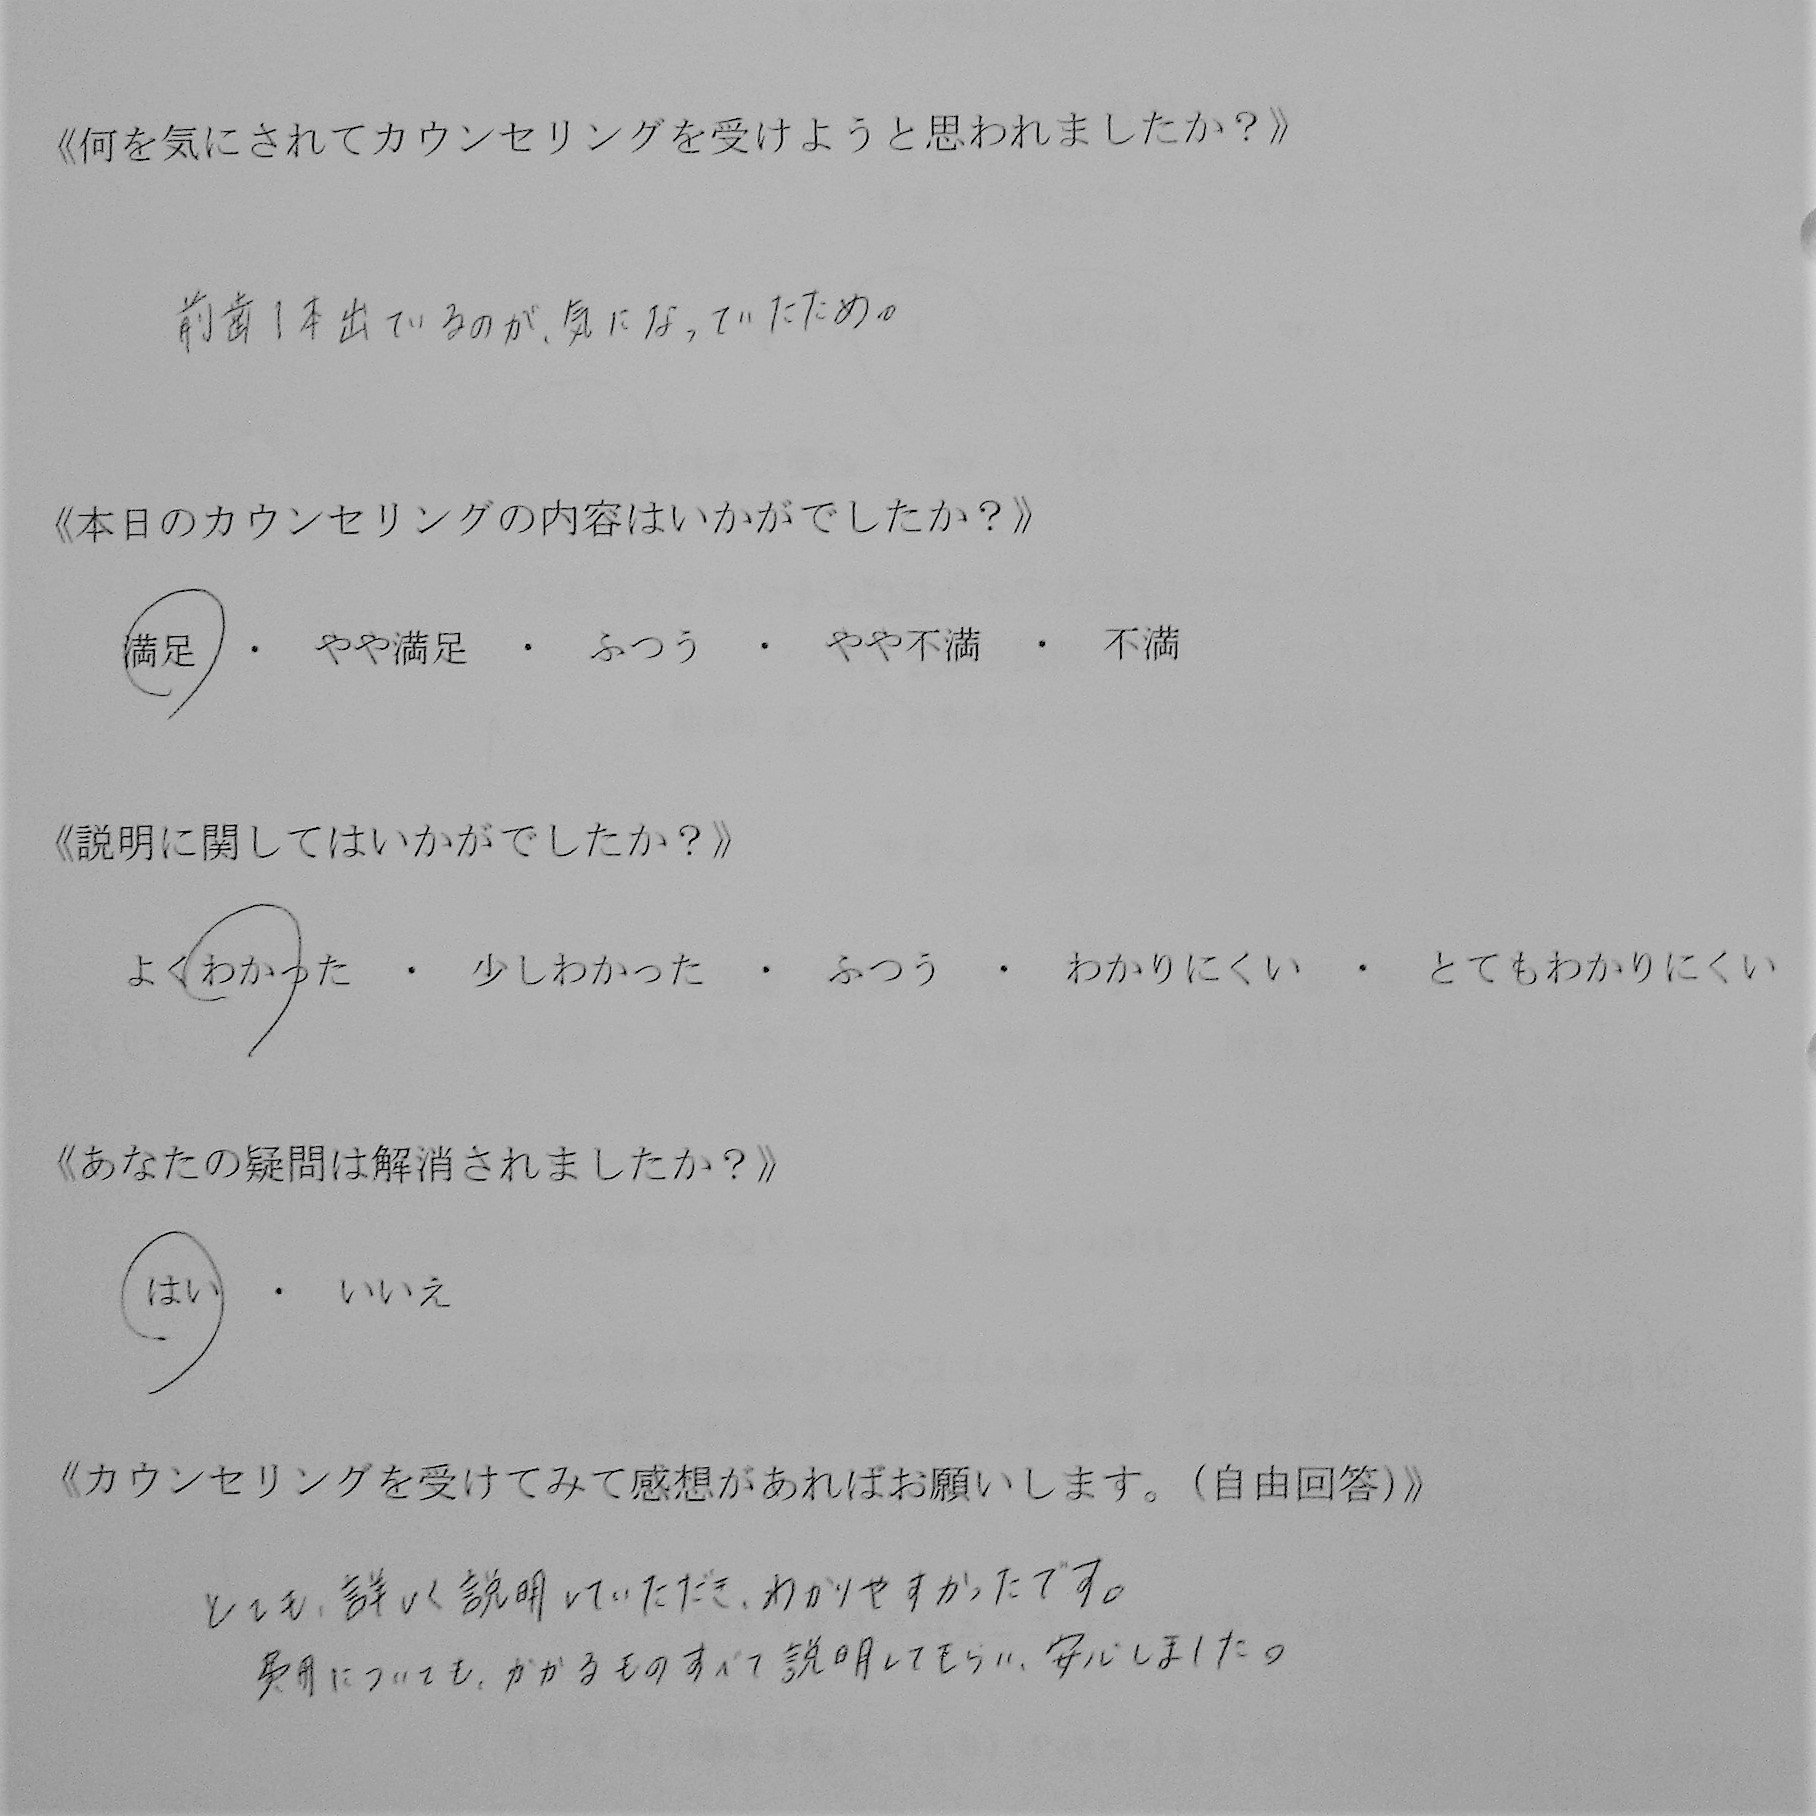 《何を気にされてカウンセリングを受けようと思われましたか？》
前歯1本出ているのが、気になっていたため。
《本日のカウンセリングの内容はいかがでしたか？》
満足 ・ やや満足 ・ ふつう ・ やや不満 ・ 不満
《説明に関してはいかがでしたか？》
よくわかった ・ 少しわかった ・ ふつう ・ わかりにくい ・ とてもわかりにくい
《あなたの疑問は解消されましたか？》
はい ・ いいえ
《カウンセリングを受けてみて感想があればお願いします。（自由回答）》
とても、詳しく説明していただき、わかりやすかったです。
費用についても、かかるものすべて説明してもらい、安心しました。